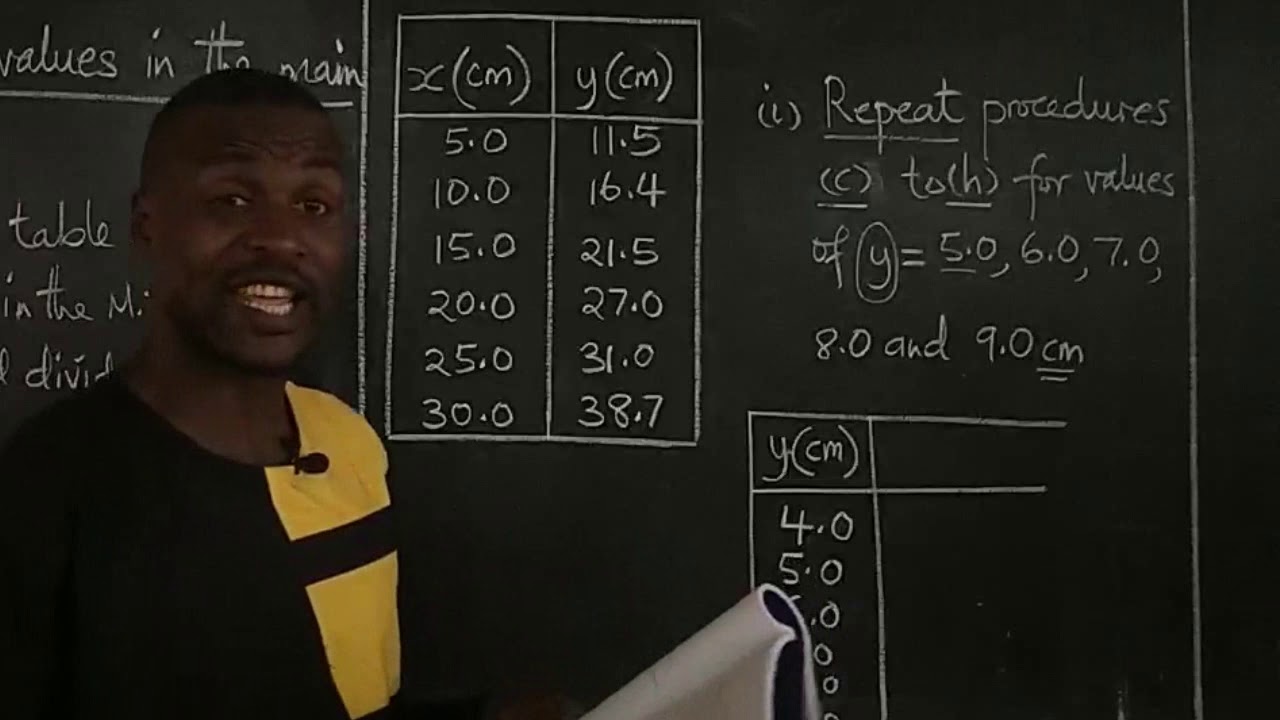 values in the main
table
in the M.
divid
x(cm) y(cm)
5.0 11.5
10.0 16.4
15.0 21.5
20.0 27.0
25.0 31.0
30.0 38.7
(i) Repeat procedures
(c) to (h) for values
of y = 5.0, 6.0, 7.0,
8.0 and 9.0 cm
y(cm)
4.0
5.0
.0
0
0